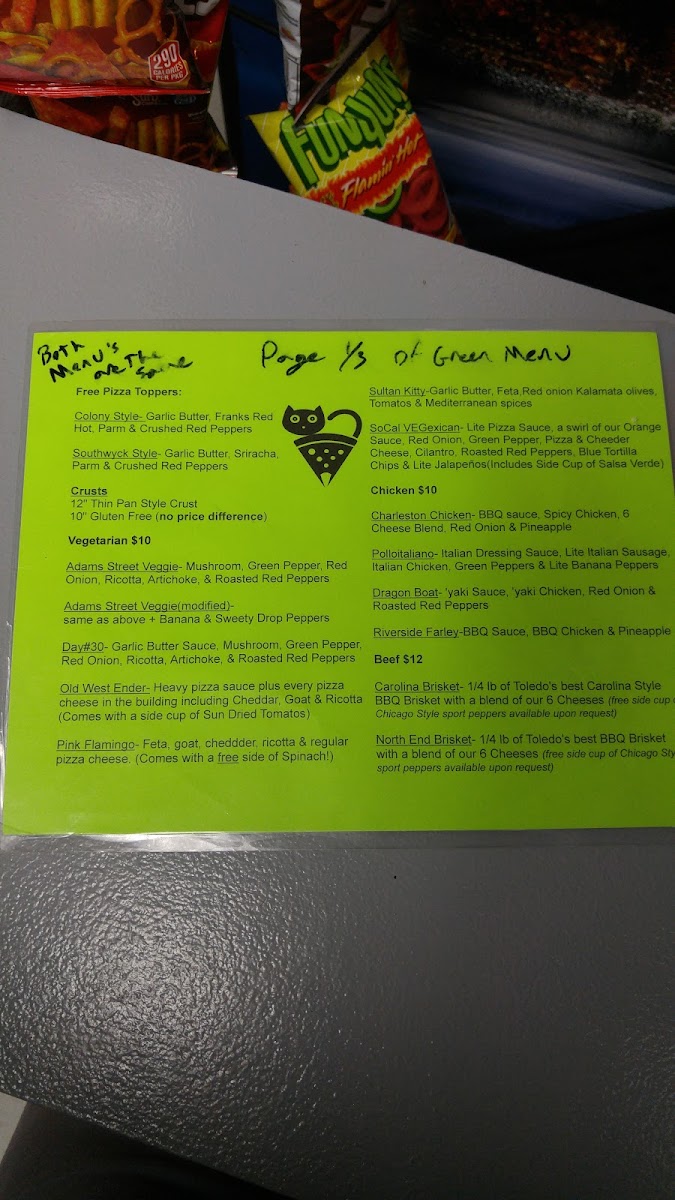 290
CALORIES
PER PKG
FUNYUNS
Flamin' Hot
Both
Menu's
are The
Same
Page 1/3 of Green Menu
Free Pizza Toppers:
Colony Style- Garlic Butter, Franks Red
Hot, Parm & Crushed Red Peppers
Southwyck Style- Garlic Butter, Sriracha,
Parm & Crushed Red Peppers
Crusts
12" Thin Pan Style Crust
10" Gluten Free (no price difference)
Vegetarian $10
Adams Street Veggie- Mushroom, Green Pepper, Red
Onion, Ricotta, Artichoke, & Roasted Red Peppers
Adams Street Veggie(modified)-
same as above + Banana & Sweety Drop Peppers
Day#30- Garlic Butter Sauce, Mushroom, Green Pepper,
Red Onion, Ricotta, Artichoke, & Roasted Red Peppers
Old West Ender- Heavy pizza sauce plus every pizza
cheese in the building including Cheddar, Goat & Ricotta
(Comes with a side cup of Sun Dried Tomatos)
Pink Flamingo- Feta, goat, cheddder, ricotta & regular
pizza cheese. (Comes with a free side of Spinach!)
Sultan Kitty-Garlic Butter, Feta,Red onion Kalamata olives,
Tomatos & Mediterranean spices
SoCal VEGexican- Lite Pizza Sauce, a swirl of our Orange
Sauce, Red Onion, Green Pepper, Pizza & Cheeder
Cheese, Cilantro, Roasted Red Peppers, Blue Tortilla
Chips & Lite Jalapeños(Includes Side Cup of Salsa Verde)
Chicken $10
Charleston Chicken- BBQ sauce, Spicy Chicken, 6
Cheese Blend, Red Onion & Pineapple
Polloitaliano- Italian Dressing Sauce, Lite Italian Sausage,
Italian Chicken, Green Peppers & Lite Banana Peppers
Dragon Boat- 'yaki Sauce, 'yaki Chicken, Red Onion &
Roasted Red Peppers
Riverside Farley-BBQ Sauce, BBQ Chicken & Pineapple
Beef $12
Carolina Brisket- 1/4 lb of Toledo's best Carolina Style
BBQ Brisket with a blend of our 6 Cheeses (free side cup
Chicago Style sport peppers available upon request)
North End Brisket- 1/4 lb of Toledo's best BBQ Brisket
with a blend of our 6 Cheeses (free side cup of Chicago Sty
sport peppers available upon request)